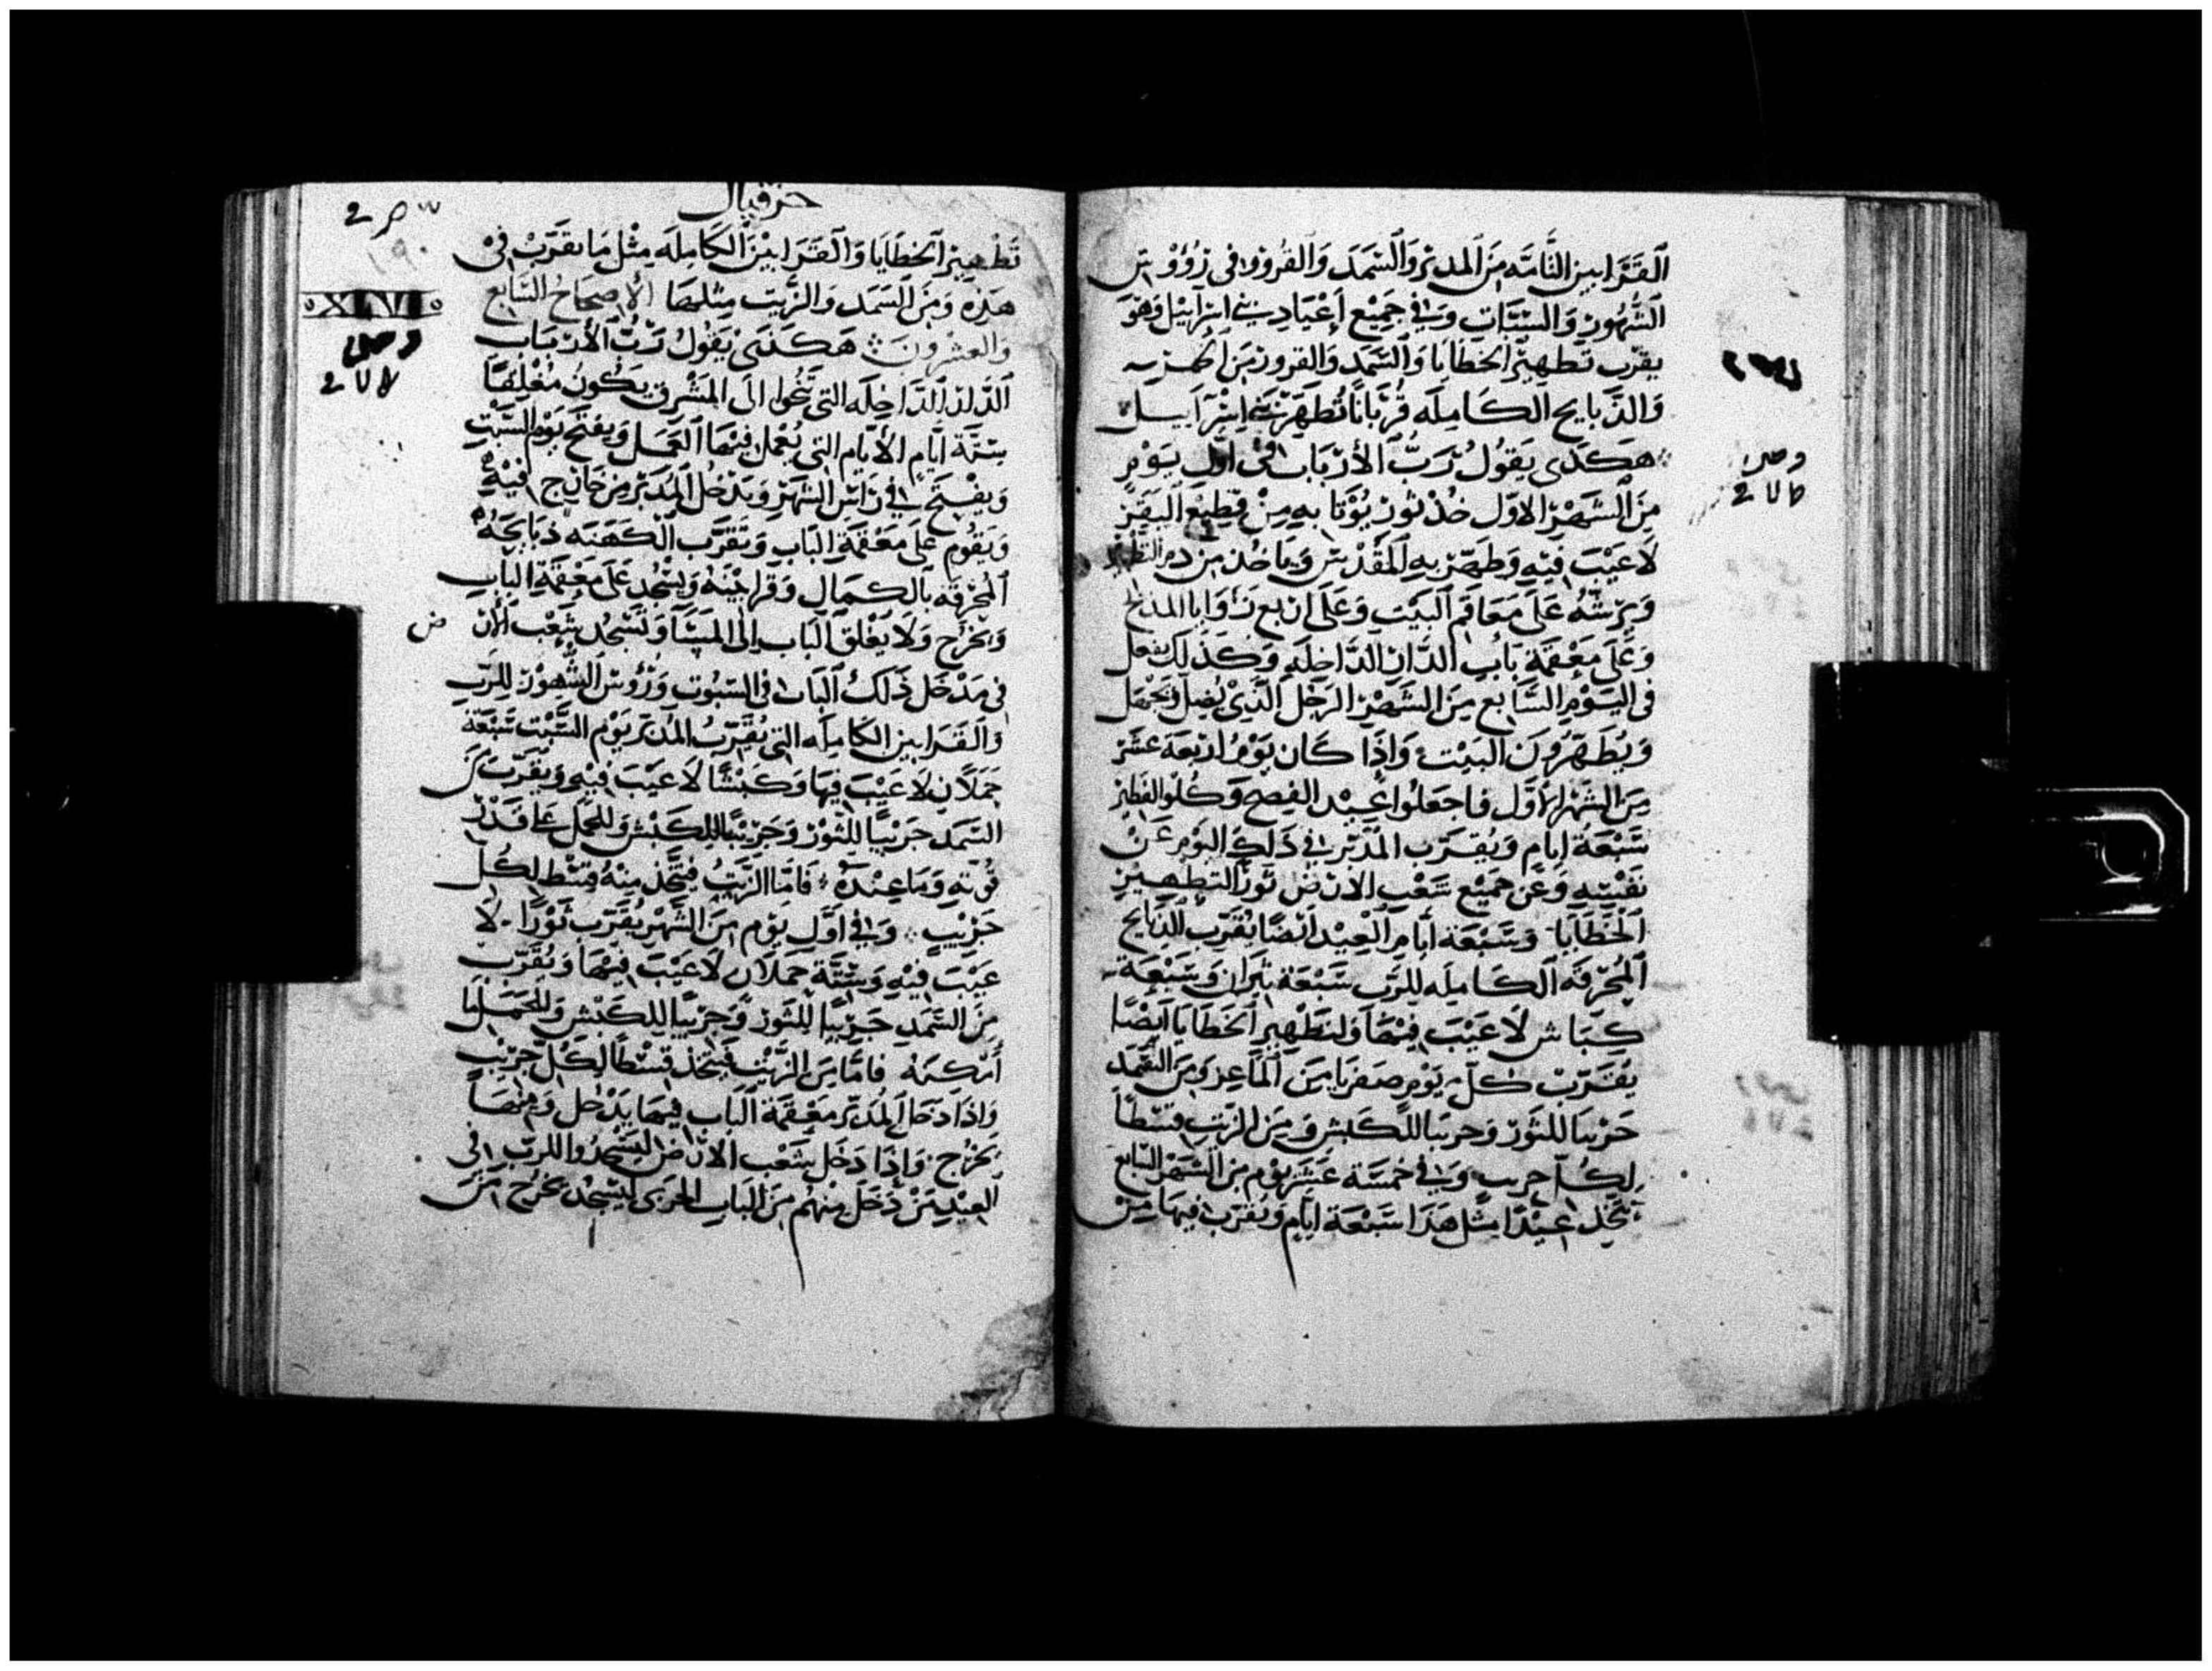 القَرَابين التَّامَّه مِنَ المدبر وَالسَّمَد وَالقُرُور فى رُؤُوس
الشُّهُور وَالسَّبّات وَفي جَمِيْع اَعْيَاد بني اسرَاييْل وَهُوَ
يقرّب تَطهيْر الخطَايَا وَالسَّمَد وَالقرور مِنَ
وَالذَّبَايح الكَامِلَه قُرْبَانًا تُطَهِّر بَني اِسْرَاييل
هَكَذَى يَقُولُ رَبُّ الأرْبَاب فى اَوّل يَوْمٍ
مِنَ الشَهْر الاوّل خُذ ثور يُوْتَا بهِ مِنْ قطِيْع البَقَر
لَا عَيْبَ فِيْهِ وَطهّر بهِ المَقْدِس وَيَاخُذ مِن دم التطهير
وَيرشّهُ عَلَى مَعَاقم البَيْت وَعَلَى اربع زوَايا المدبح
وَعَلى مَعْقمَة بَاب الدَّار الدَّاخِلَه وَكَذَلكَ يفعل
فى اليَوْم السَّابع مِنَ الشَهْر الرَجُل الَّذِي يُضِل وَيَجْهَل
وَيُطَهّرُونَ البَيْت وَاذَا كَان يَوْمُ اربَعَة عَشَر
مِنَ الشهْر الأوَّل فاجعَلُوا عِيْد الفِصْح وَكُلوا الفَطِير
سَبْعَةُ ايام وَيُقرّب المدَبّر في ذَلكَ اليَوْم عَنْ
نَفْسِهِ وَعَن جَمِيْع شَعْب الارض ثَورَ التطهِيْر
الخَطَايَا وَسَبْعَة أيَام العِيْد اَيْضًا يُقَرّب للذبَايح
المُحْرَقَه الكَامِلَه للرَّب سَبْعَة ثيرَان وَسَبْعَة
كِبَاش لَا عَيْبَ فِيْهَا وَلتَطْهير الخَطَايَا اَيْضًا
يُقَرّبْ كلّ يَوْمٍ صَفرَيا مِنَ المَاعِز وَمِنَ السَّمَد
جَرْيبَا للثَوْر وَجريبَا للكَبش وَمِنَ الزَّيت قِسْطًا
لكُلّ جريب وَفي خمسَة عَشَر يَوْم مِن الشَهْر السَّابع
يَتّخِذ عِيْدًا مِثْل هَذَا سَبْعَة ايّام وَيُقرّب فيْهَا مِنْ
حزقيال
تَطْهِيْر الخَطَايَا وَالقَرَابيْن الكَامِلَه مِثْل مَا يقرّبْ في
هَذِه وَمِنَ السَمَد وَالزَّيت مثلهَا الاصحَاحُ السَّابع
وَالعشرُونَ هَكَذَى يَقُولُ رَبُّ الأرْبَاب
الدَّار الدَّاخِلَه التي تنحُوا الَى المَشْرق يَكُون مُغْلقًا
سِتَّة ايَّام الأيَّام التي يُعْمل فِيْهَا العَمَل وَيفتح يَوْم السَّبْت
وَيفْتَح في رَاس الشهْر وَيَدْخُل المُدَبّر مِن خَارج فيْهِ
وَيَقُوم عَلَى مَعْقمَة البَاب وَتُقَرّب الكَهَنَه ذبَايحَهُ
المُحْرَقَه بالكَمَال وَقَرَابيْنَهُ وَيَسْجُد عَلى مَعْقمَة البَاب
وَيخْرُج وَلَا يُغْلَق البَاب الى المَسَآ وَيَسْجُد شَعْب الأرض
فى مَدْخَل ذَلكَ البَاب في السّبُوت وَرُؤُس الشُهُوْر للرَّب
وَالقَرَابين الكَامِلَه التي يُقَرّبُ المُدَبّر يَوْم السَّبْت سَبْعَة
حَمَلَان لَا عَيْبَ فِيهَا وَكَبْشًا لَا عَيْبَ فِيْهِ وَيُقَرّبْ مِن
السَّمَد جَريْبًا للثَوْر وَجَرْيْبًا للكَبْش وَللحمل عَلى قَدْر
قُوتهِ وَمَا عِنْدَهُ فَامَّا الزَّيتُ فيتّخذ مِنْهُ قِسْط لكُل
جَرْيْبٍ وَفي اوَّل يَوْم مِنَ الشَهْر يُقَرّب ثَوْرًا لَا
عَيْبَ فِيْهِ وَسِتَّة حِملَان لَا عَيْبَ فِيْهَا وَيُقَرّب
مِنَ السَّمَد جَرْيبًا للثَور وَجَرْيبًا للكَبْش وَللحَمَل مَا
أمكنهُ فامَّا مِنَ الزَّيْت فيَتّخذ قِسْطًا لكُلّ جَريْبٍ
وَاذَا دَخَل المُدَبّر مَعْقمَة البَاب فِيهَا يَدْخُل وَمِنْهَا
يخْرُج وَاِذَا دَخَل شَعْب الارض ليَسْجُدُوا للرّب في
العِيْد مَنْ دَخَل مِنْهُم مِنَ البَاب الجربى ليَسْجُدْ يَخْرُج مِنَ
XLVI